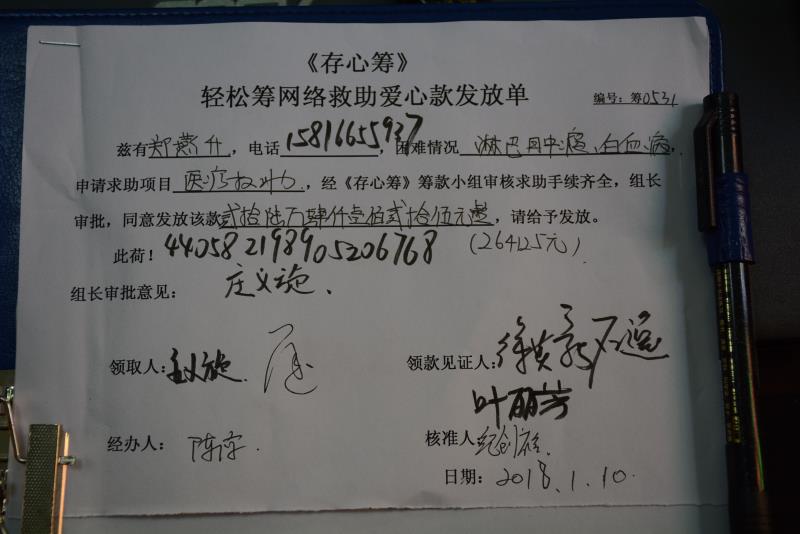 《存心筹》
轻松筹网络救助爱心款发放单
编号：筹0531
兹有郑燕升，电话15816655937，困难情况淋巴肿瘤、白血病，
申请求助项目医疗救助，经《存心筹》筹款小组审核求助手续齐全，组长
审批，同意发放该款贰拾陆万肆仟壹佰贰拾伍元整，请给予发放。
此荷！440582198905206768（264125元）
组长审批意见：庄义旋、
领取人：
领款见证人：徐英
叶丽芳
经办人：陈
核准人：纪创
日期：2018.1.10.